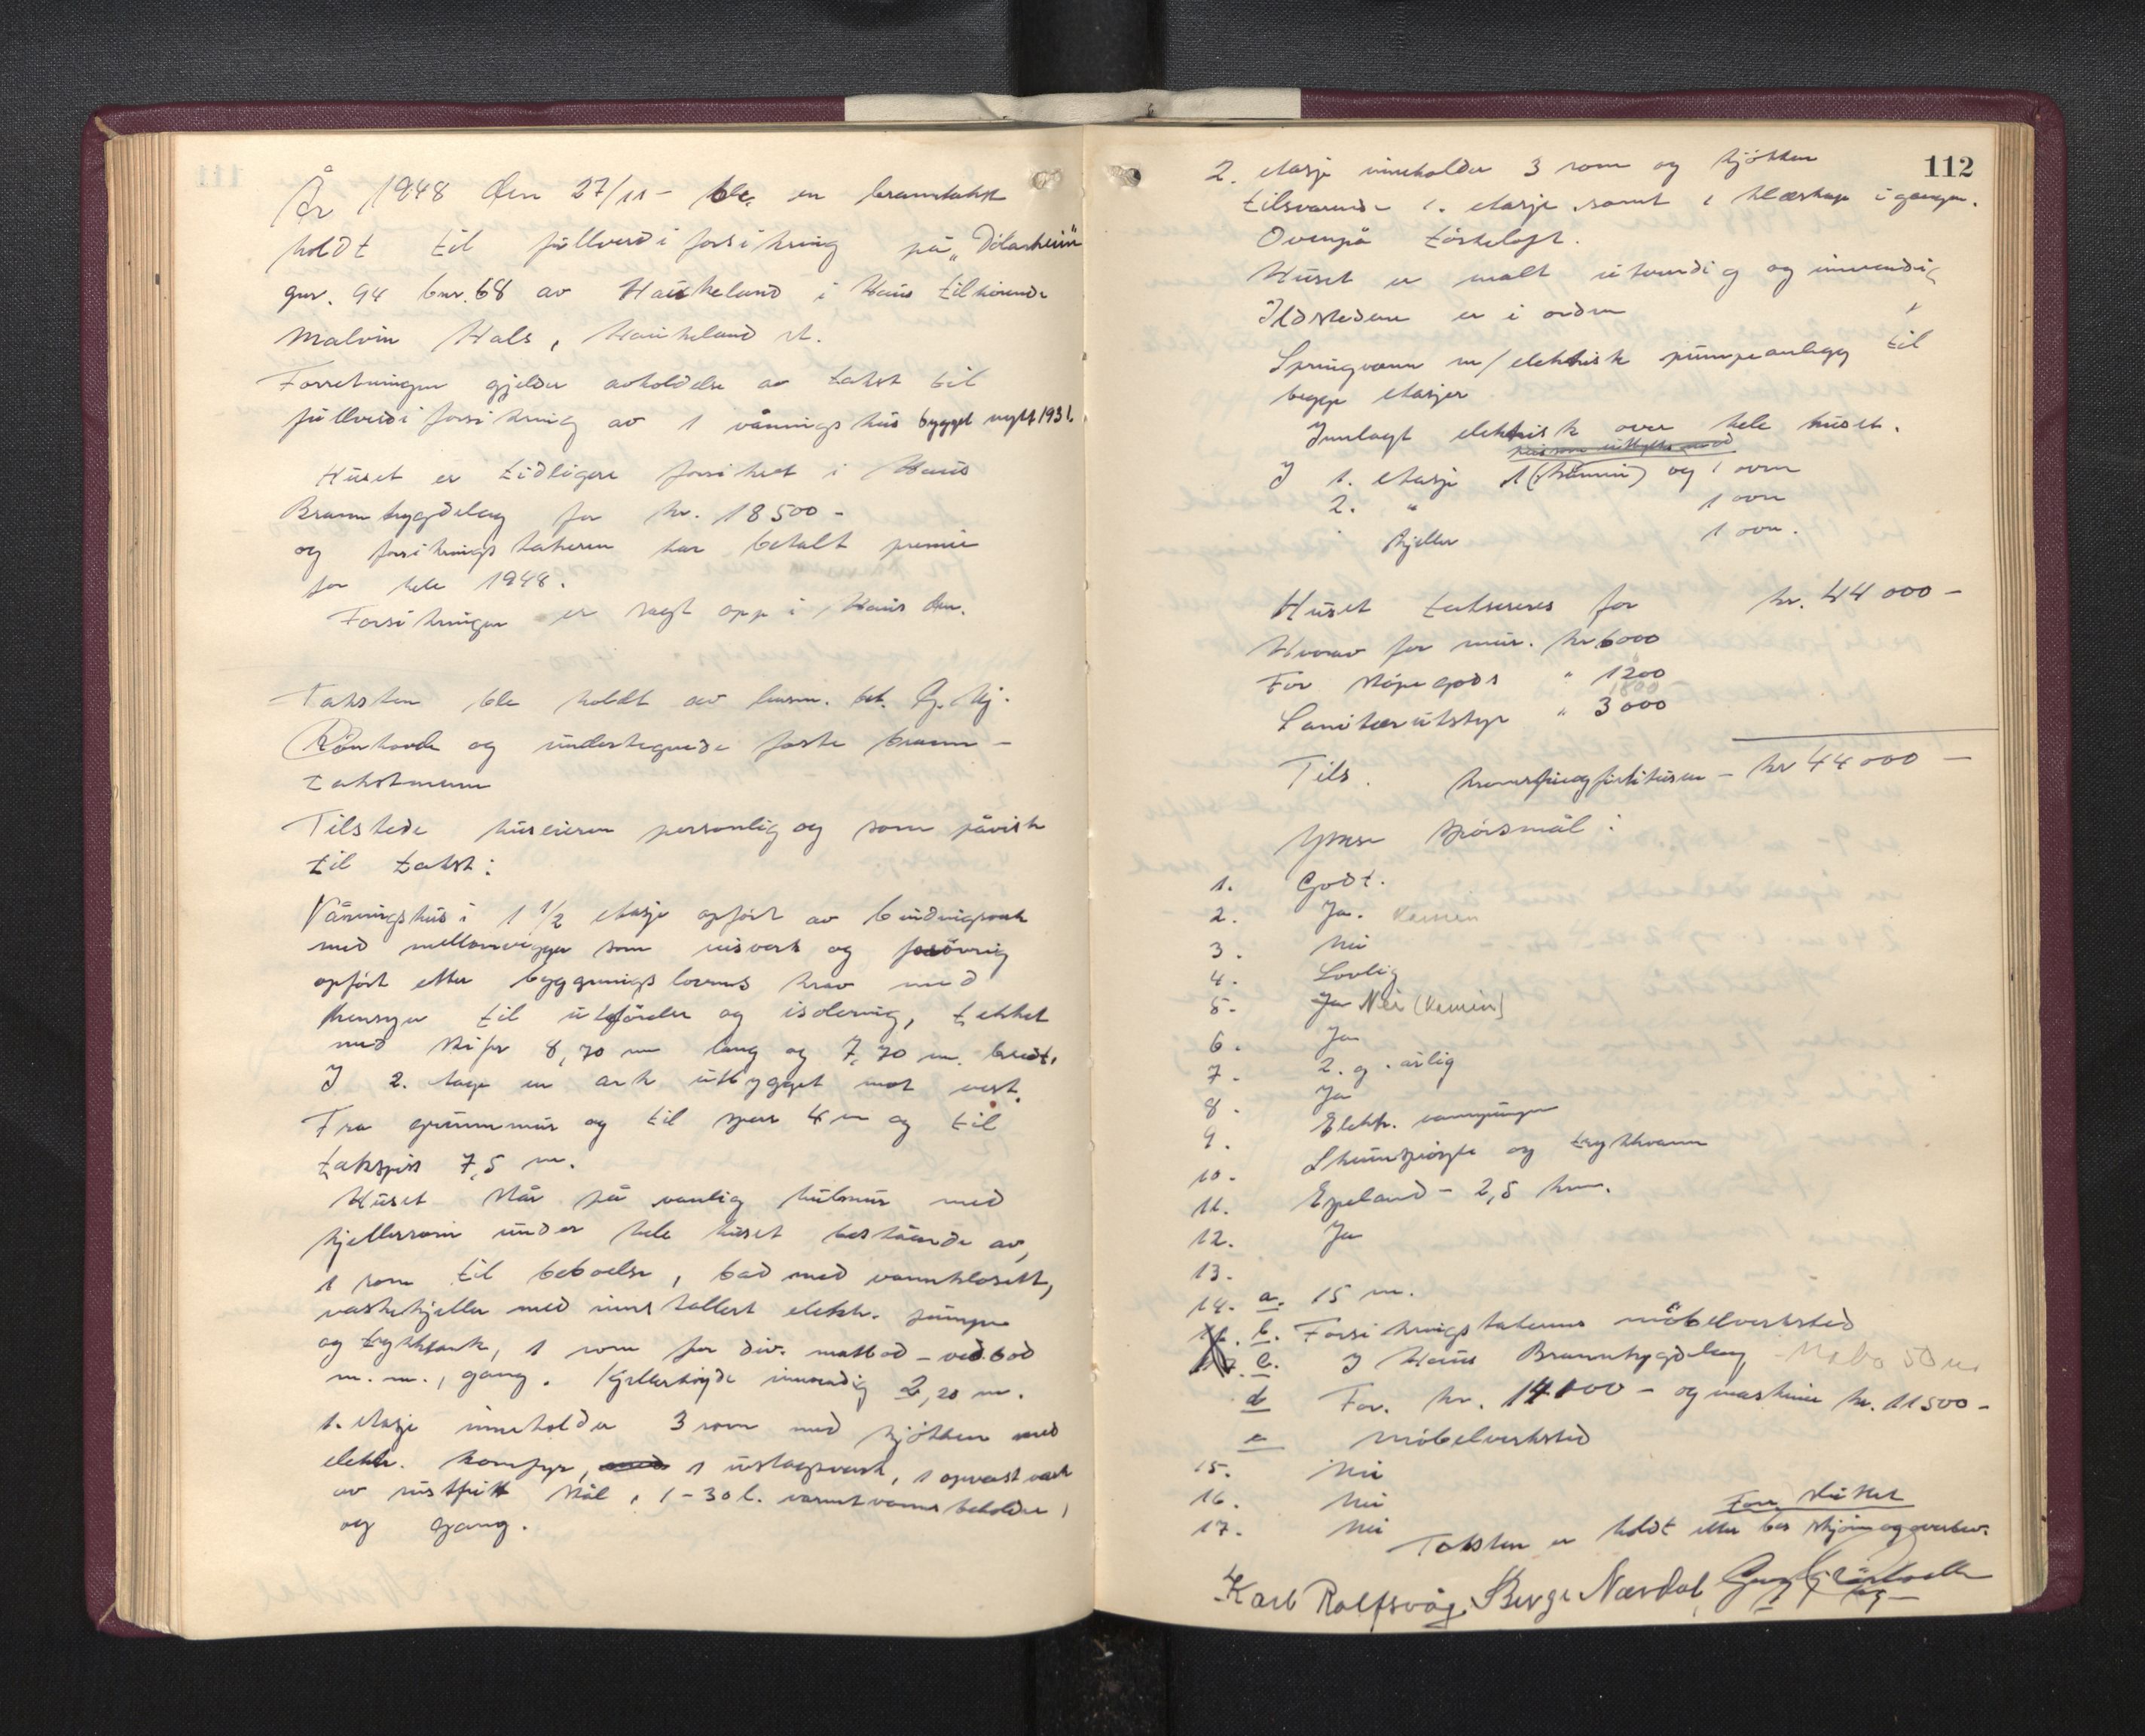 År 1948 den 27/11 - ble en branntakst
holdt til fullverdiforsikring på "Solarheim"
gnr. 94 bnr. 68 av Haukeland i Haus tilhörende
Malvin Hals, Haukeland st.
Forretningen gjelder avholdelse av takst til
fullverdiforsikring av 1 våningshus bygget nytt 1931.
Huset er tidligere forsikret i Haus
Branntrygdelag for kr. 18500 -
og forsikringstakeren har betalt premie
for hele 1948.
Forsikringen er sagt opp i Haus
Taksten ble holdt av
og undertegnede faste brann-
takstmenn
Tilstede huseieren personlig og som påviste
til takst:
Våningshus i 1 1/2 etasje opfört av bindingsverk
med mellemvegger som reisverk og forövrig
opfört etter bygningslovens krav med
hensyn til utförelse og isolering, tekket
med skifer 8,70 m lang og 7,70 m. bredt.
I 2. etage en ark utbygget mot vest.
Fra grunnmur og til sper 4 m og til
takspiss 7,5 m.
Huset står på vanlig hulmur med
kjellerrom under hele huset bestående av,
1 rom til beboelse, bad med vannklosett,
vaskekjeller med innstallert elektr. pumpe
og trykktank, 1 rom for div. matbod - vedbod
m. m., gang. Kjellerhöyde innvendig 2,20 m.
1. etasje inneholder 3 rom med kjökken med
elektr. komfyr, med 1 utslagsvask, 1 opvaskvask
av rustfritt stål, 1-30 l. varmtvannsbeholder,
og gang.
112
2. etasje inneholder 3 rom og kjökken
tilsvarende 1. etasje samt 1 klæskap i gangen.
Ovenpå törkeloft.
Huset er malt utvendig og innvendig
Ildstedene er i orden
Springvann m/elektrisk pumpeanlegg til
begge etasjer
Innlagt elektrisk over hele huset.
I 1. etasje 1 (kamin) og 1 ovn
2. " 1 ovn
Kjeller 1 ovn.
Huset takseres for kr. 44 000 -
Hvorav for mur. kr 6000
For stöpegods " 1200
Sanitærutstyr " 3000
Tils. kronerførtifiretusen - kr 44000 -
Ymse spörsmål:
1. Godt.
2. Ja. Kamin
3. Nei
4. Lovlig
5. Ja Nei (Kamin)
6. Ja
7. 2. g. årlig
8. Ja
9. Elektr. vannpumpe
10. Skumspröyte og trykkvann
11. Espeland - 2,5 km.
12. Ja
13.
14. a. 15 m.
b. Forsikringstakerens möbelverksted
c. I Haus Branntrygdelag Nabo 50 m
d For. kr. 14000 - og maskiner kr. 11500 -
e Möbelverksted
15. Nei
16. Nei
17. Nei
Taksten er holdt etter bes skjönn og overbev.
Karl Rolfsvåg. Börge Nærdal,